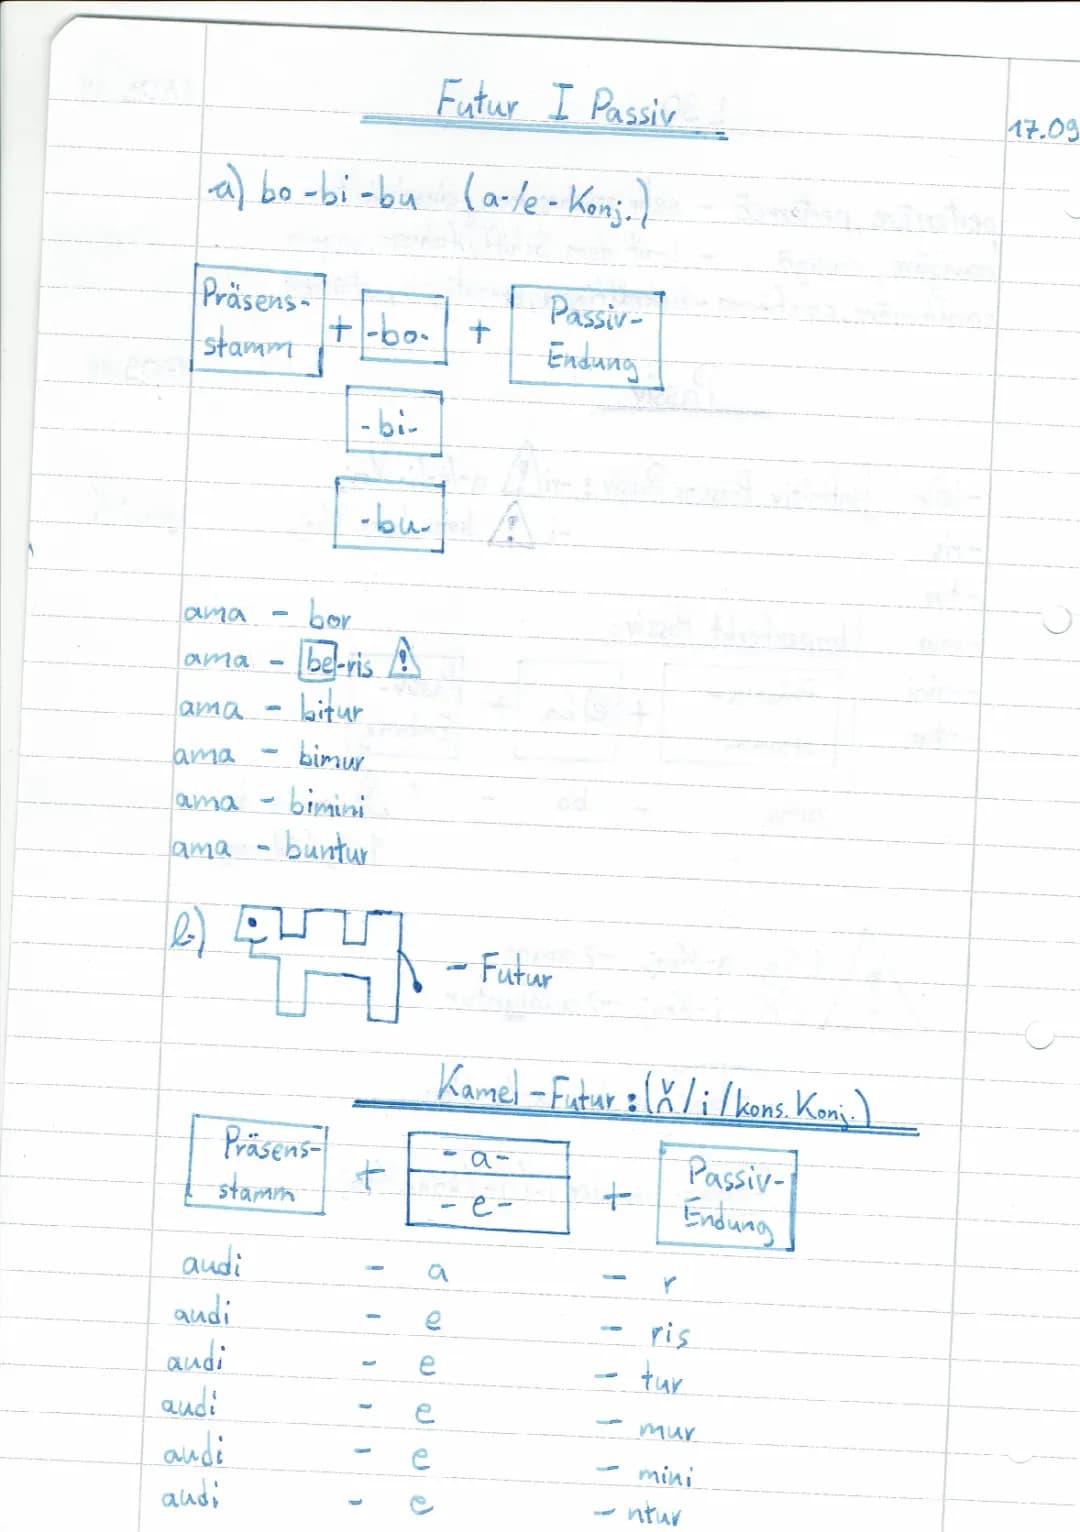 Futur I Passiv
17.09
a) bo-bi-bu (a-/e-Konj.)
Präsens-
stamm + -bo- + Passiv-
Endung
-bi-
-bu- ⚠
ama - bor
ama - be-ris ⚠
ama - bitur
ama - bimur
ama - bimini
ama - buntur
b) - Futur
Kamel-Futur: (ǩ/i/kons. Konj.)
Präsens-
stamm + -a- + Passiv-
-e- Endung
audi - a - r
audi - e - ris
audi - e - tur
audi - e - mur
audi - e - mini
audi - e - ntur